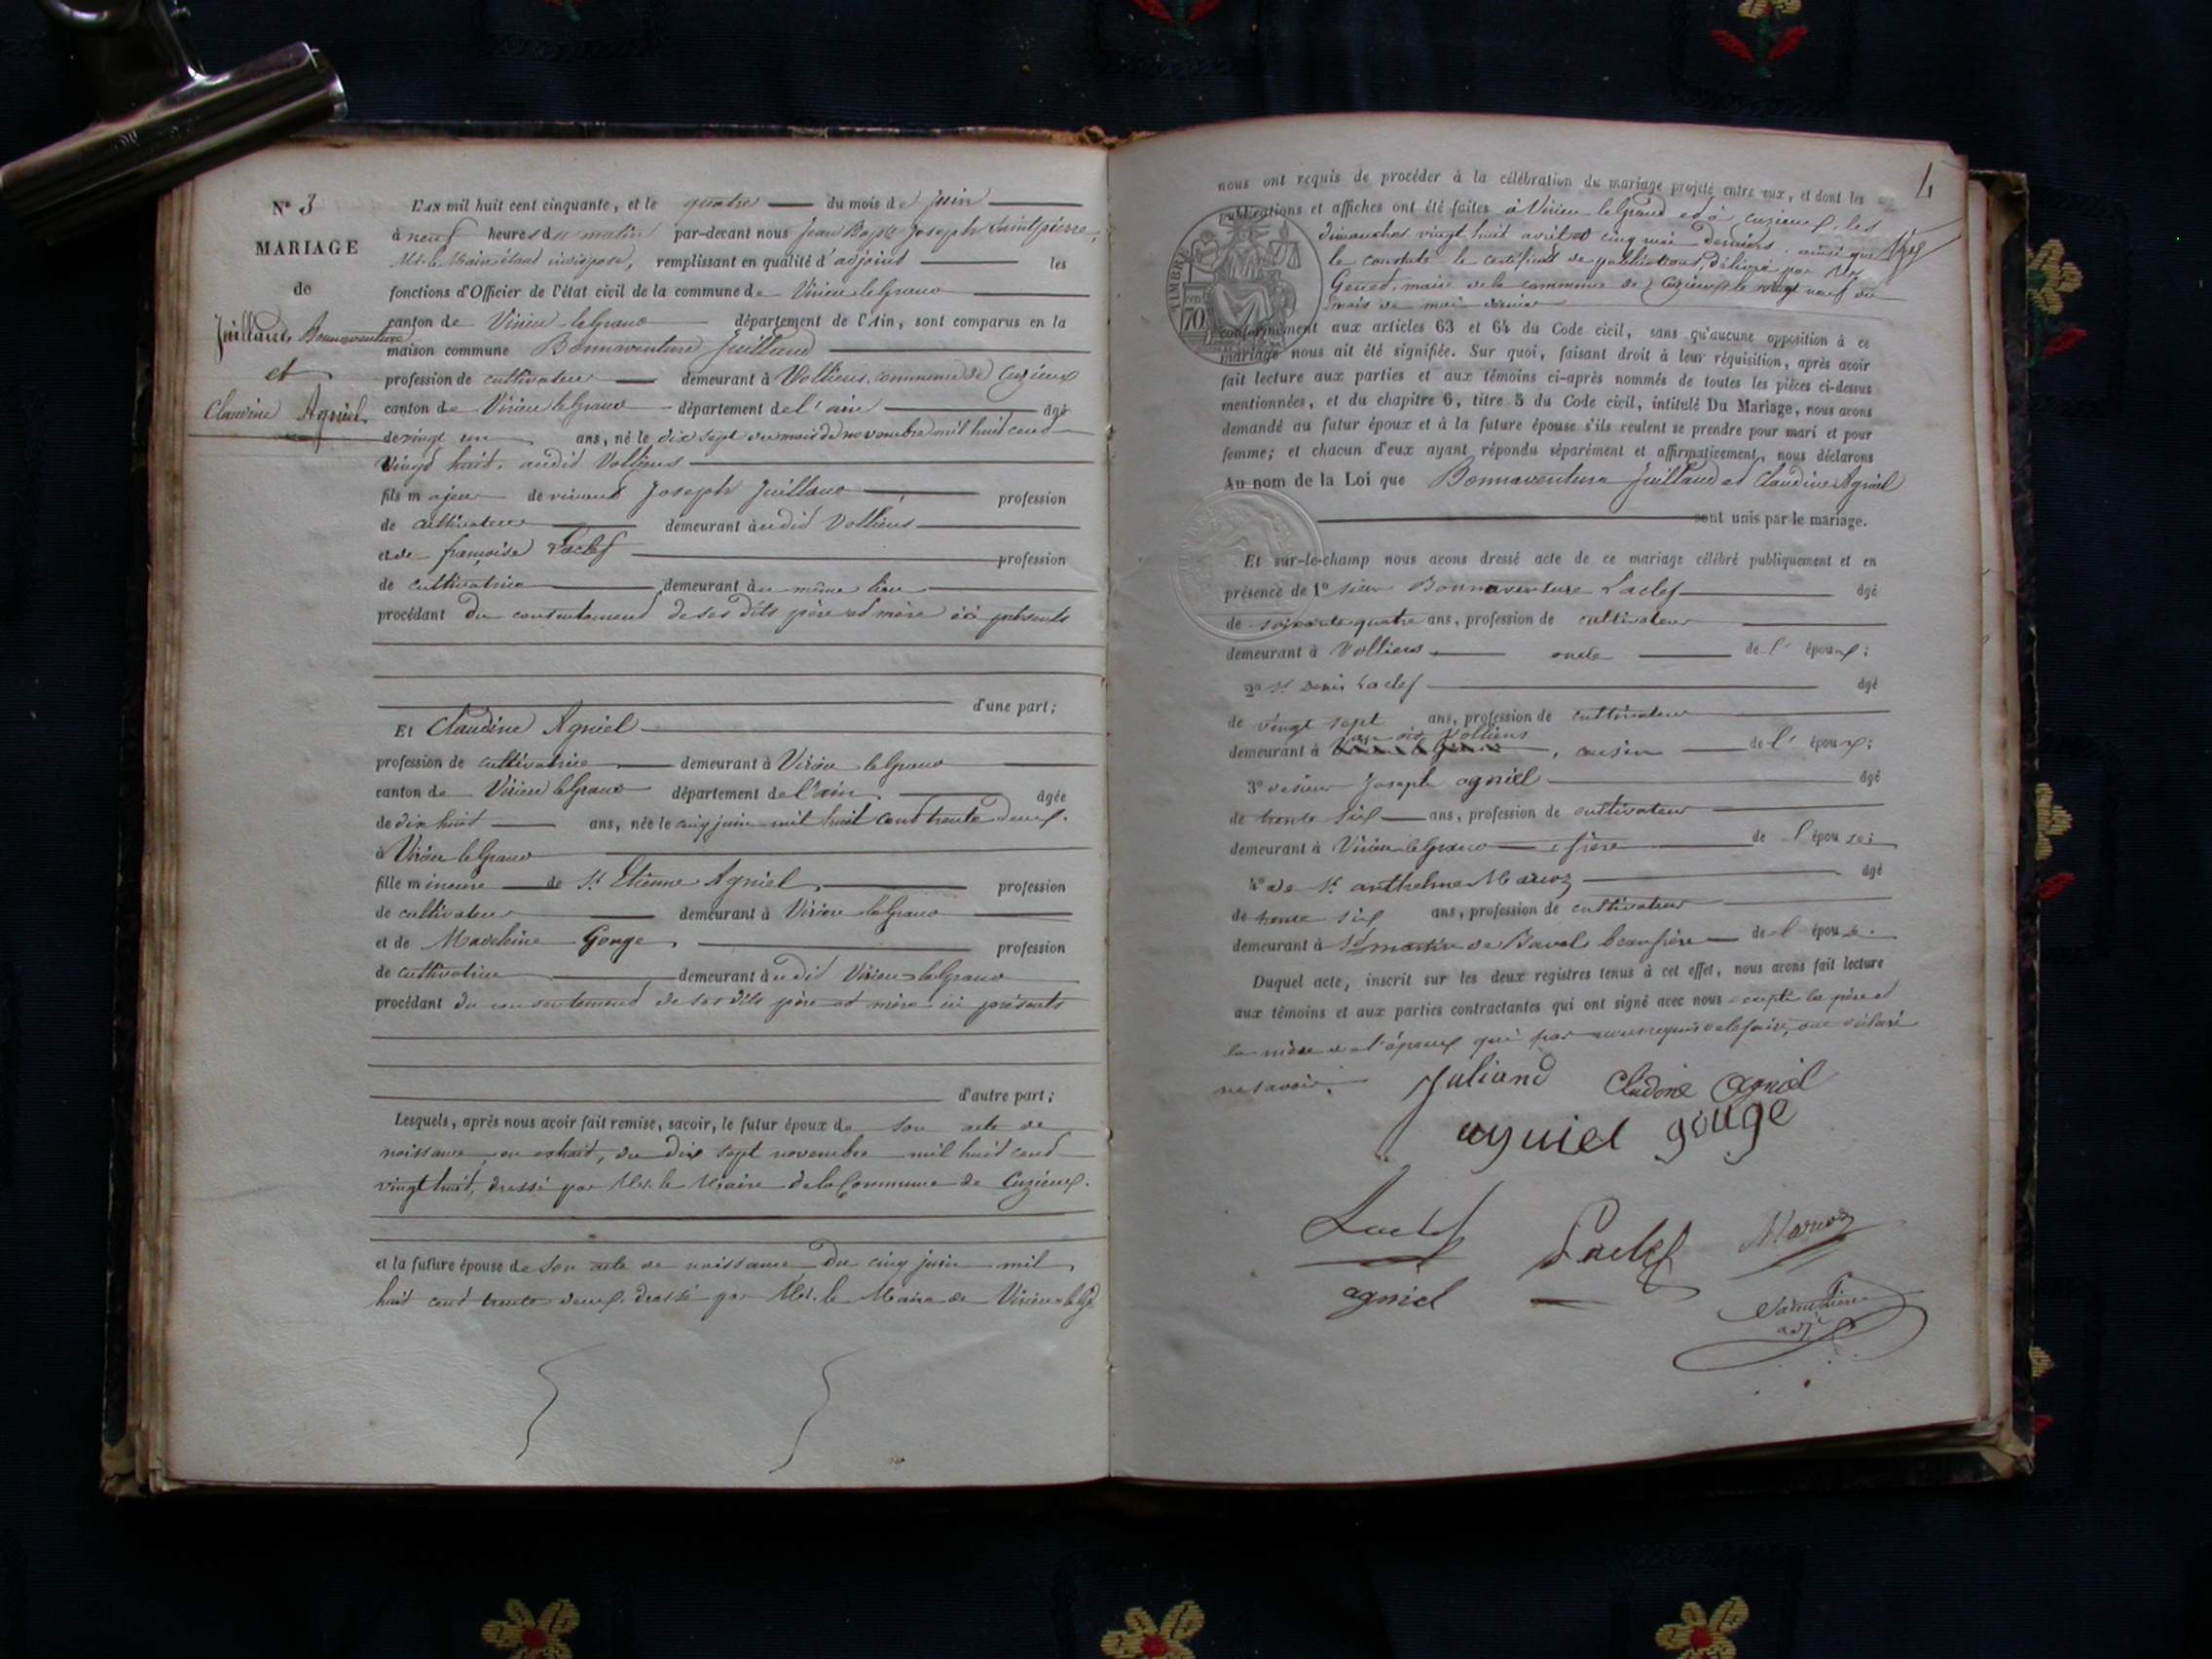 N° 3
MARIAGE
de
Juilland, Bonnaventure
et
Claudine Agniel
L'AN mil huit cent cinquante, et le quatre du mois de juin
à neuf heures du matin par-devant nous Jean Bapte Joseph Saintpierre,
Mr. le Maire étant indisposé, remplissant en qualité d'adjoint les
fonctions d'Officier de l'état civil de la commune de Virieu leGrand
canton de Virieu-leGrand département de l'Ain, sont comparus en la
maison commune Bonnaventure Juilland
profession de cultivateur demeurant à Vollien, commune de Cuzieux
canton de Virieu leGrand département de l'ain âgé
de vingt un ans, né le dix sept du mois de novembre mil huit cent
vingt huit, audit Vollien
fils majeur de vivant Joseph Juilland, profession
de cultivateur demeurant audit Vollien
et de françoise Laclef profession
de cultivatrice demeurant au même lieu
procédant du consentement de ses dits père et mère ici présents
d'une part;
Et Claudine Agniel
profession de cultivatrice demeurant à Virieu leGrand
canton de Virieu leGrand département de l'ain âgée
de dix huit ans, née le cinq juin mil huit cent trente deux.
à Virieu leGrand
fille mineure de Sr Etienne Agniel, profession
de cultivateur demeurant à Virieu leGrand
et de Madeleine Gouge, profession
de cultivatrice demeurant audit Virieu-leGrand
procédant du consentement de ses dits père et mère ici présents
d'autre part;
Lesquels, après nous avoir fait remise, savoir, le futur époux de son acte de
naissance, en extrait, du dix sept novembre mil huit cent
vingt huit, dressé par Mr. le Maire de la Commune de Cuzieux.
et la future épouse de son acte de naissance du cinq juin mil
huit cent trente deux, dressé par Mr. le Maire de Virieu-leGd
4
nous ont requis de procéder à la célébration du mariage projeté entre eux, et dont les
publications et affiches ont été faites à Virieu leGrand et à Cuzieux, les
dimanches vingt huit avril et cinq mai derniers. ainsi que
le constate le certificat de publications, délivré par Mr
maire de la commune de Cuzieux le vingt neuf du
mois de mai dernier
TIMBRE
70
conformément aux articles 63 et 64 du Code civil, sans qu'aucune opposition à ce
mariage nous ait été signifiée. Sur quoi, faisant droit à leur réquisition, après avoir
fait lecture aux parties et aux témoins ci-après nommés de toutes les pièces ci-dessus
mentionnées, et du chapitre 6, titre 5 du Code civil, intitulé Du Mariage, nous avons
demandé au futur époux et à la future épouse s'ils veulent se prendre pour mari et pour
femme; et chacun d'eux ayant répondu séparément et affirmativement, nous déclarons
Au nom de la Loi que Bonnaventure Juilland et Claudine Agniel
sont unis par le mariage.
Et sur-le-champ nous avons dressé acte de ce mariage célébré publiquement et en
présence de 1° sieur Bonnaventure Laclef âgé
de soixante quatre ans, profession de cultivateur
demeurant à Vollien oncle de l'époux;
2° Sr Denis Laclef âgé
de vingt sept ans, profession de cultivateur
demeurant à Vollien, cousin de l'époux;
3° de sieur Joseph agniel âgé
de trente six ans, profession de cultivateur
demeurant à Virieu leGrand frère de l'épouse;
4° de Sr anthelme Marcoz âgé
de trente six ans, profession de cultivateur
demeurant à St martin de Bavel beaufrère de l'épouse.
Duquel acte, inscrit sur les deux registres tenus à cet effet, nous avons fait lecture
aux témoins et aux parties contractantes qui ont signé avec nous excepté le père et
la mère de l'époux qui par nous requis de le faire, ont déclaré
ne savoir.
Juliand Cludine Agniel
agniel gouge
Laclef Laclef Marcoz
agniel
Saintpierre
adj